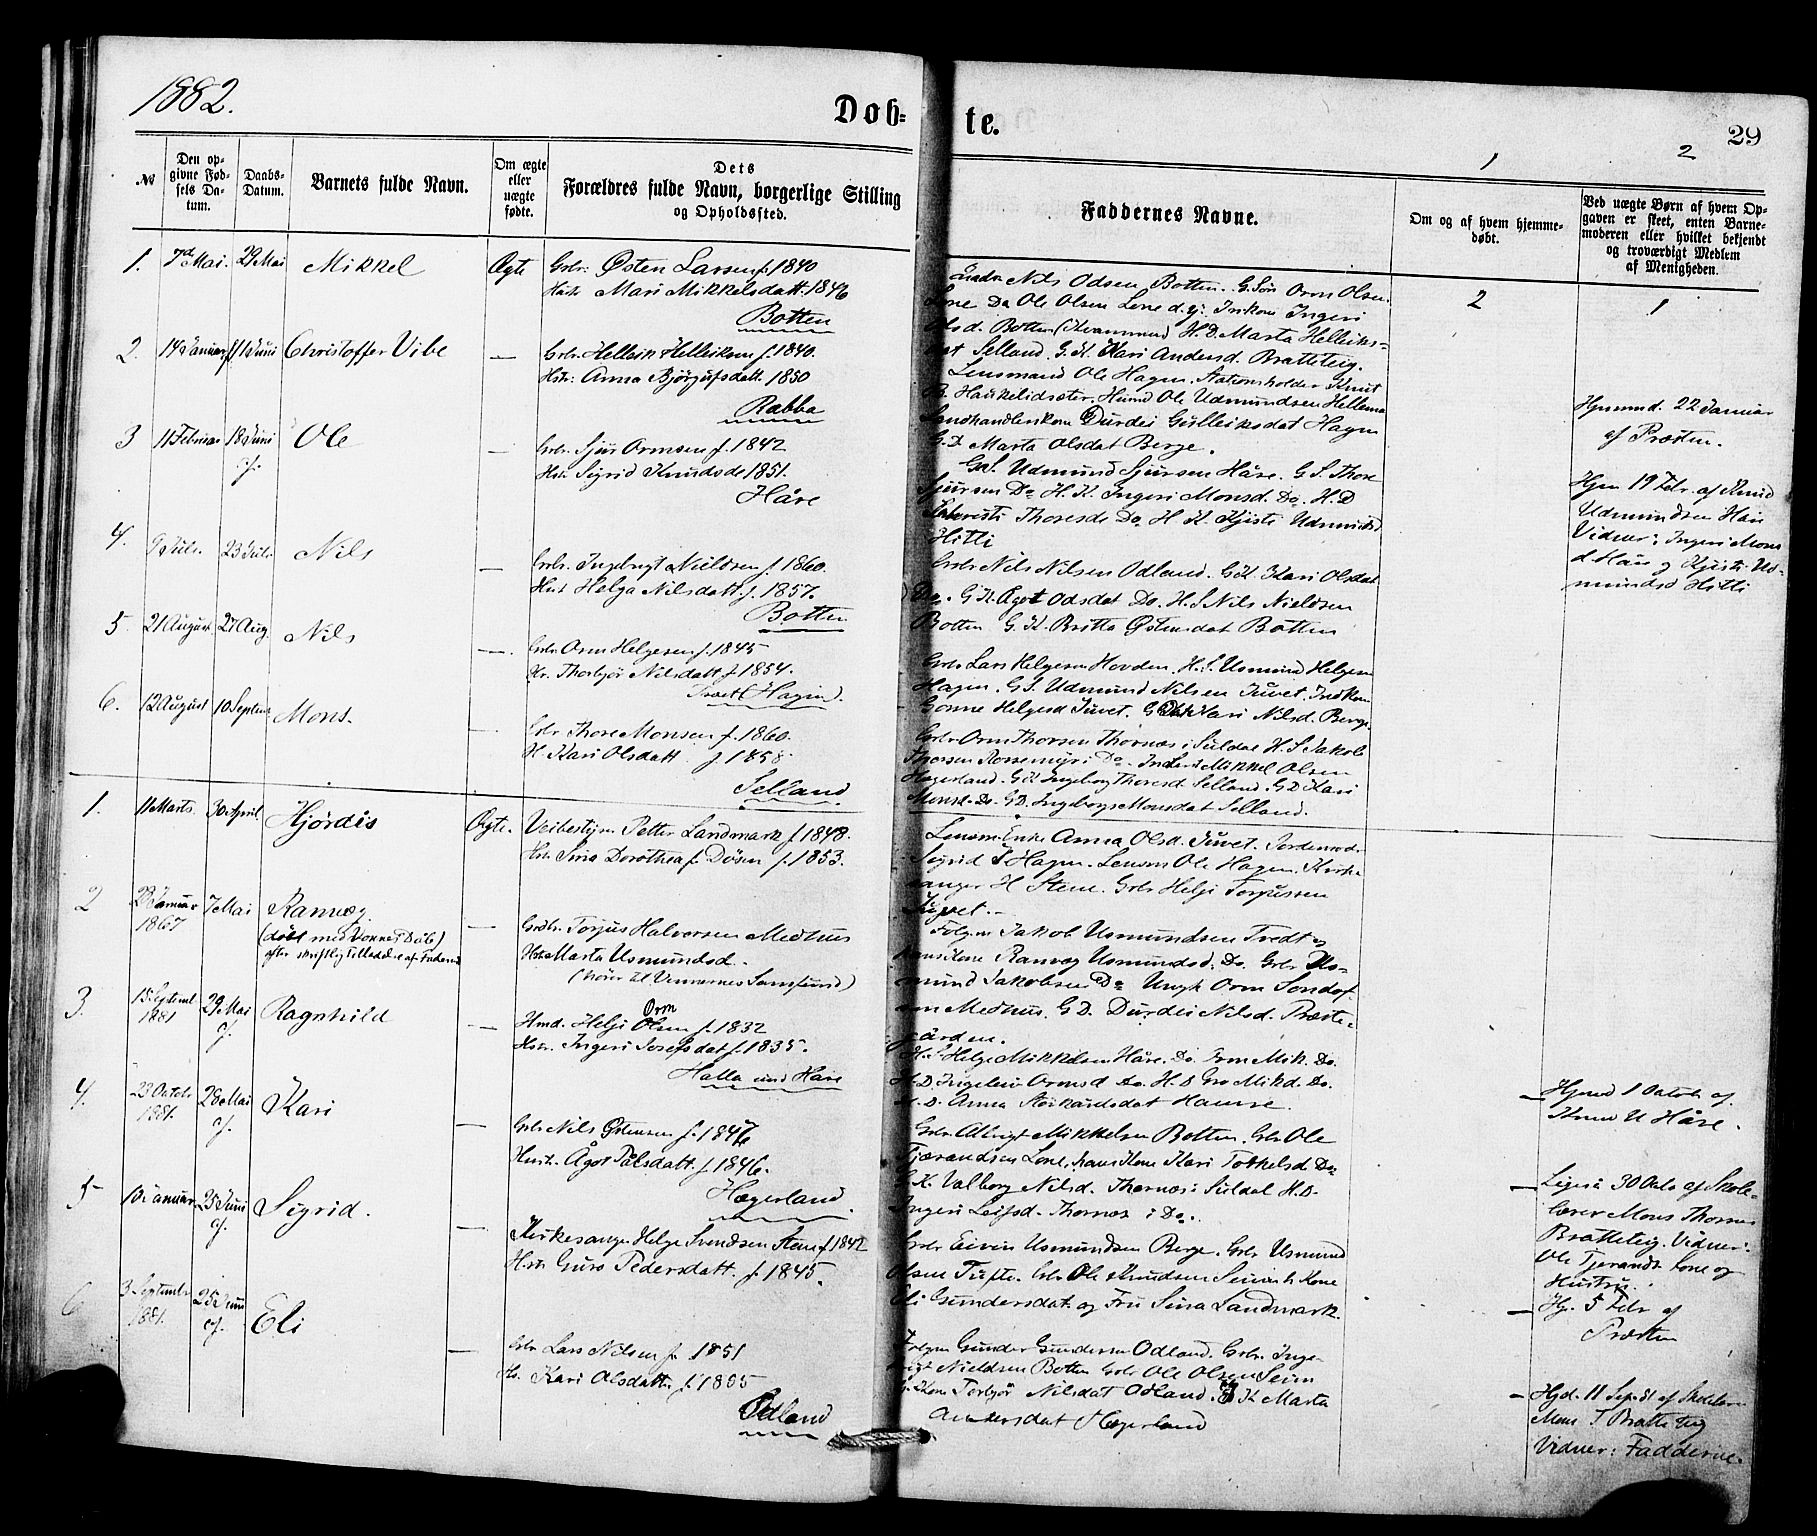 1882.
Døb=
te.
29
1
2
№
Den op-
givne Fød-
sels Da-
tum.
Daabs-
Datum.
Barnets fulde Navn.
Om ægte
eller
uægte
fødte.
Dets
Forældres fulde Navn, borgerlige Stilling
og Opholdssted.
Faddernes Navne.
Om og af hvem hjemme-
døbt.
Ved uægte Børn af hvem Op-
gaven er skeet, enten Barne-
moderen eller hvilket bekjendt
og troværdigt Medlem
af Menigheden.
2
1
1. 7d Mai. 29 Mai Mikkel Ægte Grbr: Østen Larsen f. 1840
Hstr Mari Mikkelsdatt. 1846
Botten
Nils Odsen Botten. G. Søn Orm Olsen
Lone Do Ole Olsen Lone d.y. Ingeri
Olsd. Botten (Kvammend H.D. Marta Helleiks-
dat Selland. G.K. Kari Andersd. Bratteteig.
2. 14 Januar 11 Juni Christoffer Vibe — Grbr. Helleik Helleiksen f. 1840.
Hstr: Anna Bjørgufsdatt. 1850
Rabba
Lensmand Ole Hagen, Stationsholder Knut
B. Haukelidsæter, Husmd Ole Udmundsen Hellemo
Landhandlerkone Durdei Gulleiksdat Hagen
G.D Marta Olsdat Berge.
Hjemmd. 22 Januar
af Præsten.
3 11 Februar 18 Juni Ole — Grbr. Sjur Ormsen f. 1842
Hstr Sigrid Knudsd. 1851.
Håre
G.S. Udmund Sjursen Håre. G S. Thore
Sjursen Do H. K. Ingeri Monsd. Do. H.D
Thoresd. Do. H K. Kjisti Udmundsd
Hitti
Hjem 19 Febr. af Knud
Udmundsen Håre
Vidner: Ingeri Mons
d Håre og Kjisti Ud-
mundsd Hitti
4. 9 Juli. 23 Juli Nils — Grbr. Ingebrigt Nieldsen f. 1860.
Hust Helga Nilsdatt f. 1857.
Botten
Grbr Nils Nilsen Odland. G.K. Kari Olsdat
Do. G.K. Ågot Odsdat Do. H.S. Nils Nieldsen
Botten G.K. Britta Østensdat Botten
5. 21 August 27 Aug. Nils — Grbr. Orm Helgesen f. 1845
Hr. Thorbjør Nilsdatt f. 1854.
Tvæt (Hagen).
Grbr Lars Helgesen Hovden. H.S. Usmund Helgesen
Hagen. G.S. Udmund Nilsen Juvet. Indkone
Gonne Helgesd Juvet. G. D. Kari Nilsd. Berge.
6. 12 August 10 Septem Mons. — Grbr Thore Monsen f. 1860.
H. Kari Olsdatt f 1858
Selland.
Grbr Orm Thorsen Thornæs i Suldal H. S Jakob
Thorsen Rossemyr i Do. Inderst Mikkel Olsen
Hægerland. G.K. Ingeborg Thoresd. Selland. G.D. Kari
Monsd. Do. G.D. Ingeborg Monsdat Selland.
1. 11 Marts 30 April Hjørdis Ægte. Veibestyrer Petter Landmark f. 1848.
Hstr. Sina Dorothea f. Døsen f. 1853.
Lensm. Enke Anna Olsd. Juvet. Jordemod.
Sigrid S Hagen. Lensm Ole Hagen. Kirke-
sanger H Stene. Grbr Helje Torjussen
Juvet.-
2 28 Januar
1867 7 Mai Ranveg
(døbt med Voxnes Daab)
efter skriftlig Tilladelse af Faderen
Grdbr. Torjus Halvorsen Medhus
Hstr. Marta Usmundsd.
(hører til Vennernes Samfund)
Følgem Jakob Usmundsen Tvedt og
hans Kone Ranveg Usmundsd. Do. Grbr Us-
mund Jakobsen Do Ungk Orm Sondof-
sen Medhus. G D. Durdei Nilsd. Præste-
gården.
3. 15 Septembr
1881 29 Mai
cf. Ragnhild — Hmd. Helje Orm Olsen f. 1832
Hstr. Ingeri Josefsdat f. 1835.
Halla und Håre
H. S. Helge Mikkelsen Håre. Do. Orm Mik. Do.
H.D. Ingeleiv Ormsd Do. H.D Gro Mikd. Do.
H.D. Anna Størkarsdat Hamre.
Hjemd 1 Octob. af
Knud U Håre.
4. 23 Octobr
1881. 28 Mai
cf. Kari — Grbr Nils Østensen f. 1847
Hustr. Ågot Pålsdatt. f 1846.
Hægerland.
Grbr Albrigt Mikkelsen Botten. Grbr Ole
Tjerandsen Lone, hans Kone Kari Torkelsd Do
G.K. Valborg Nilsd. Thornæs i Suldal H.D.
Ingeri Leifsd. Thornæs i Do.
Ligesaa 30 Octo af Skole-
lærer Mons Thornes
Bratteteig. Vidner:
Ole Tjerands. Lone og
Hustru.
5 10 Januar 25 Juni
cf. Sigrid. — Kirkesanger Helge Svendsen Stene f. 1842
Hstr Guro Pedersdatt. f. 1845.
Grbr Eivin Usmundsen Berge. Grbr Usmund
Olsen Tufte. Gbr Ole Knudsen Seim h Kone
Eli Gundersdat og Fru Sina Landmark.
Hj. 5 Febr af
Præsten
6 3 Septembr
1881. 25 Juni
cf. Eli — Grbr Lars Nilsen f. 1851
Hs. Kari Olsdatt. f. 1855
Odland
Følgm Gunder Gundersen Odland. Grbr. Inge-
brigt Nieldsen Botten Grbr Ole Olsen Seim
G. Kone Torbjør Nilsdat Odland. G K Marta
Andersdat Hægerland
Hjd. 11 Sept 81 af Skolelærer
Mons T Bratteteig
Vidner: Fadderne.